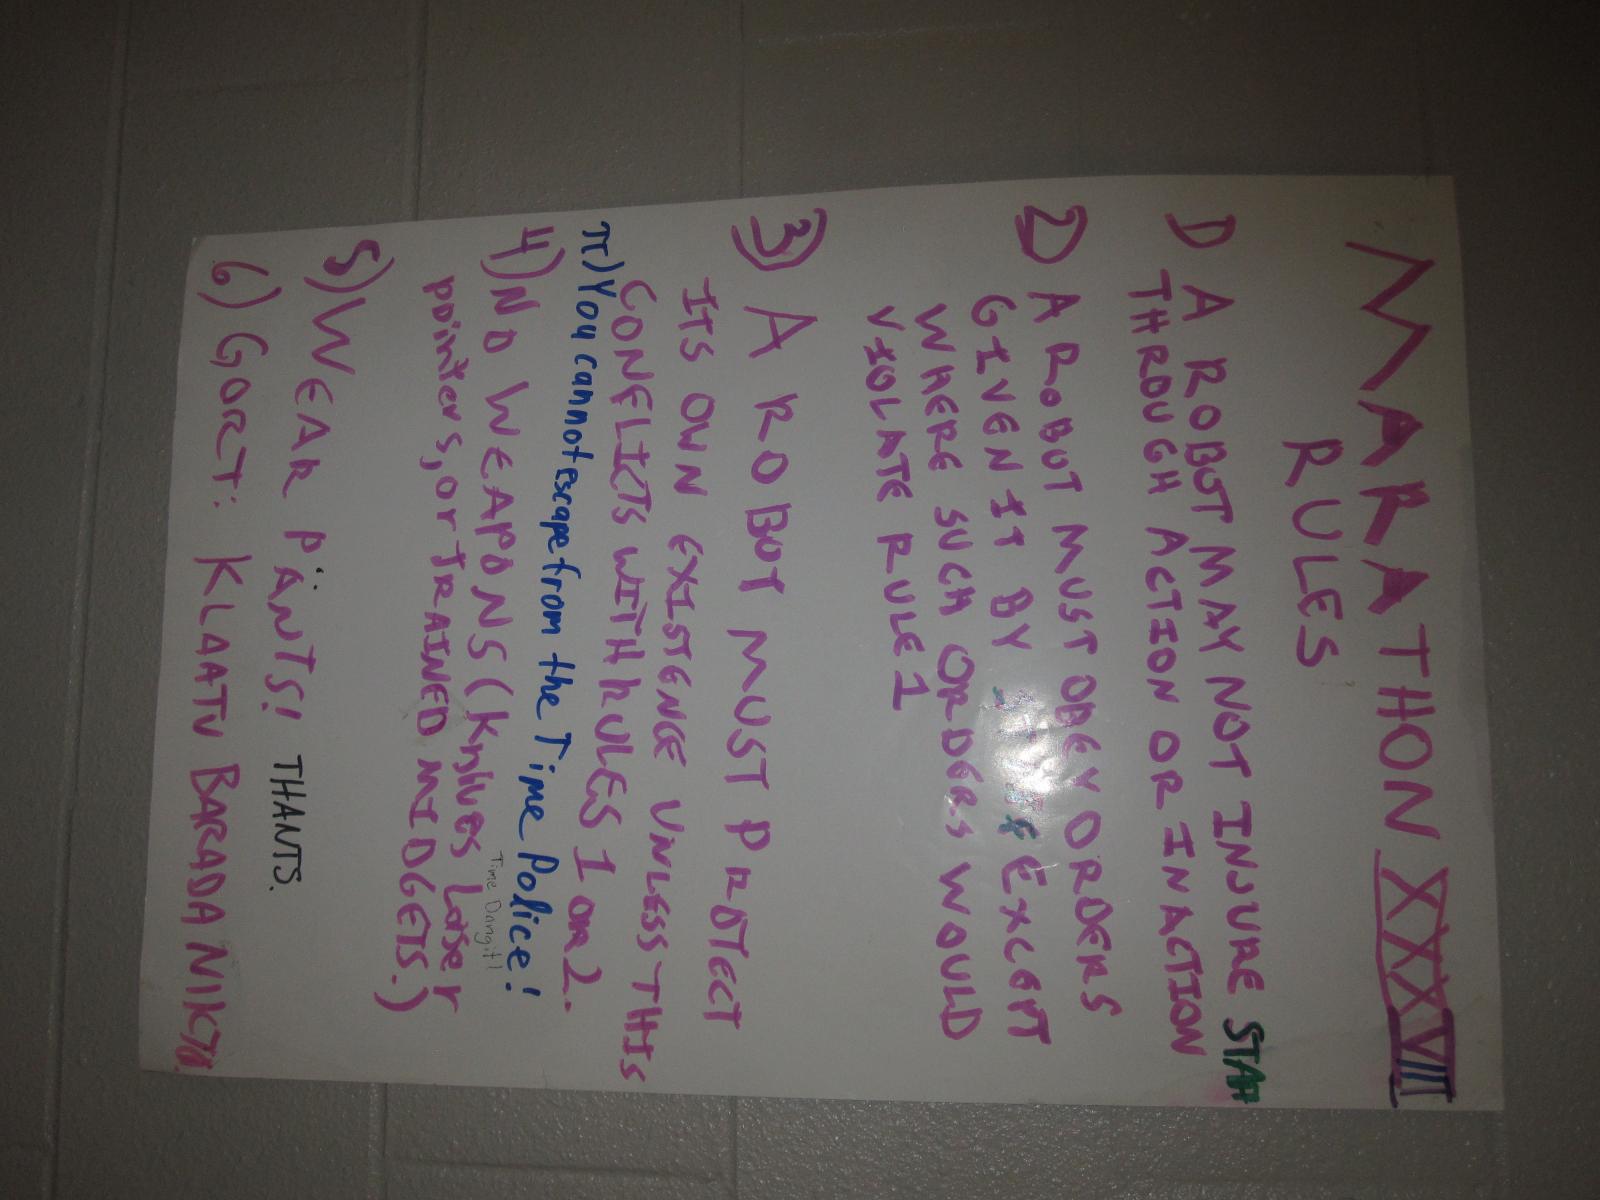 MARATHON XXXVIII
RULES
1) A ROBOT MAY NOT INJURE STAFF
THROUGH ACTION OR INACTION
2) A ROBOT MUST OBEY ORDERS
GIVEN IT BY EXCEPT
WHERE SUCH ORDERS WOULD
VIOLATE RULE 1
3) A ROBOT MUST PROTECT
ITS OWN EXISTENCE UNLESS THIS
CONFLICTS WITH RULES 1 OR 2.
π) You cannot escape from the Time Police!
4) NO WEAPONS (Knives Laser
Time Dangit!
pointers, or TRAINED MIDGETS.)
5) WEAR PÄNTS! THANTS.
6) GORT: KLAATU BARADA NIKTO.